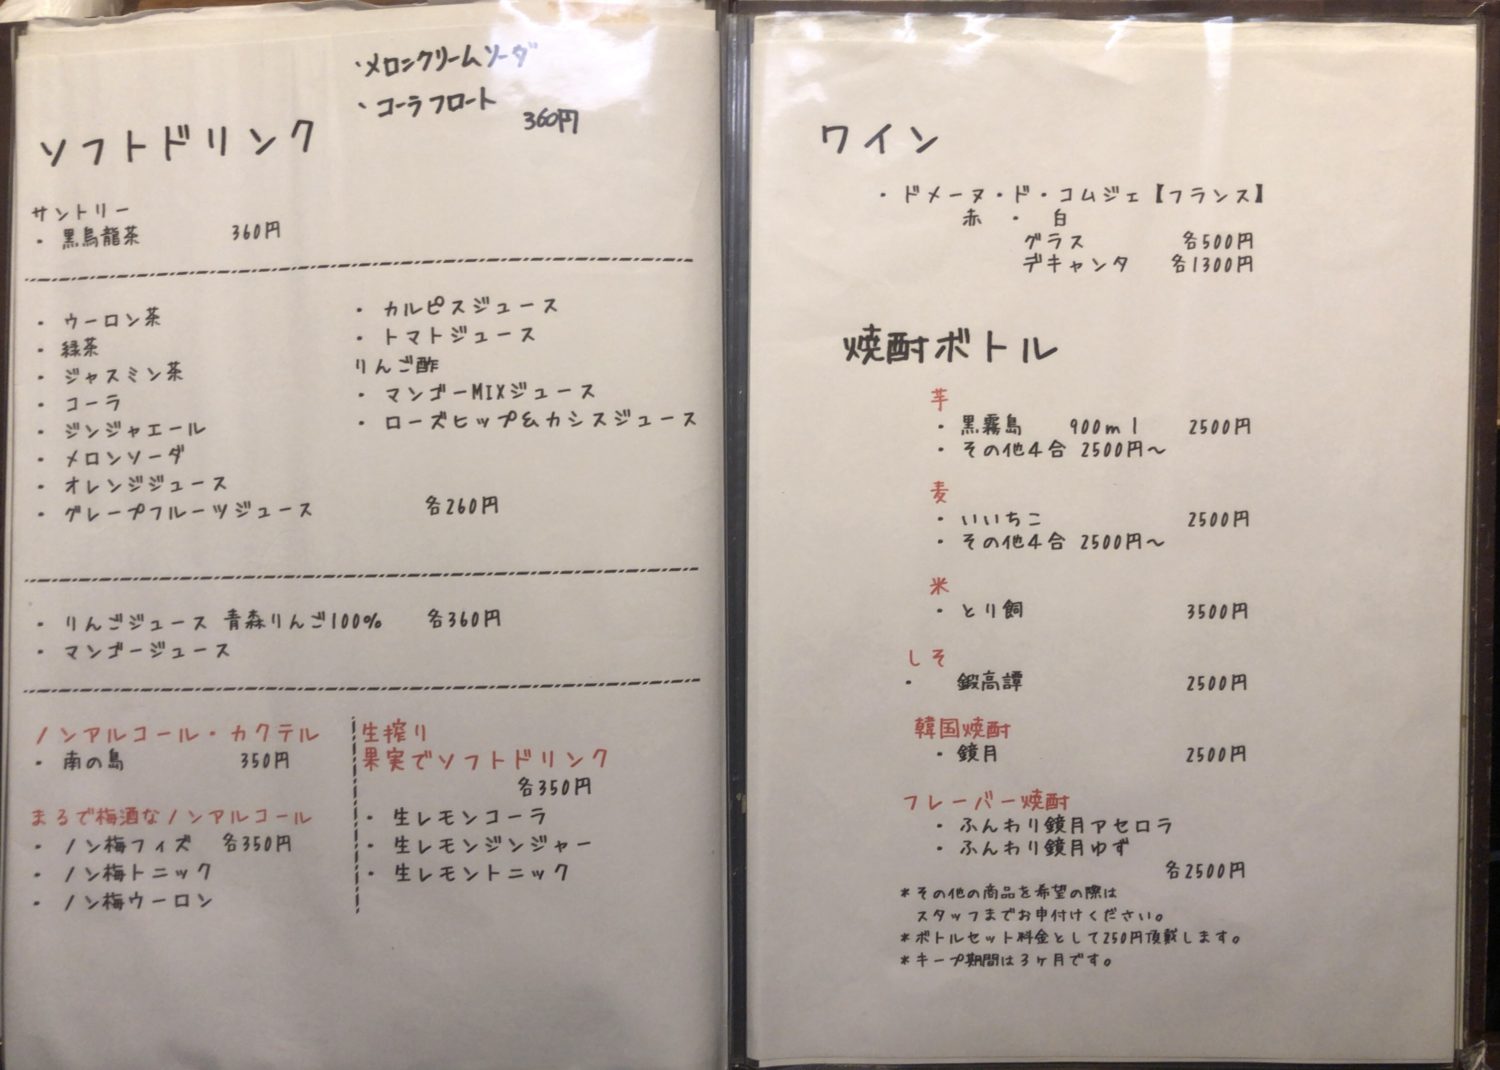 ・メロンクリームソーダ
・コーラフロート
360円
ソフトドリンク
サントリー
・黒烏龍茶 360円
・ウーロン茶
・緑茶
・ジャスミン茶
・コーラ
・ジンジャエール
・メロンソーダ
・オレンジジュース
・グレープフルーツジュース
・カルピスジュース
・トマトジュース
りんご酢
・マンゴーMIXジュース
・ローズヒップ&カシスジュース
各260円
・りんごジュース 青森りんご100% 各360円
・マンゴージュース
ノンアルコール・カクテル
・南の島 350円
まるで梅酒なノンアルコール
・ノン梅フィズ 各350円
・ノン梅トニック
・ノン梅ウーロン
生搾り
果実でソフトドリンク
各350円
・生レモンコーラ
・生レモンジンジャー
・生レモントニック
ワイン
・ドメーヌ・ド・コムジェ【フランス】
赤 ・ 白
グラス 各500円
デキャンタ 各1300円
焼酎ボトル
芋
・黒霧島 900ml 2500円
・その他4合 2500円～
麦
・いいちこ 2500円
・その他4合 2500円～
米
・とり飼 3500円
しそ
・ 鍛高譚 2500円
韓国焼酎
・鏡月 2500円
フレーバー焼酎
・ふんわり鏡月アセロラ
・ふんわり鏡月ゆず
各2500円
*その他の商品を希望の際は
スタッフまでお申付けください。
*ボトルセット料金として250円頂戴します。
*キープ期間は3ヶ月です。